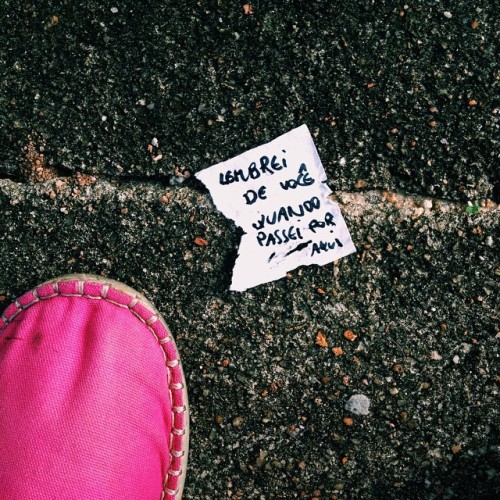 LEMBREI
DE VOCÊ
QUANDO
PASSEI POR
AQUI